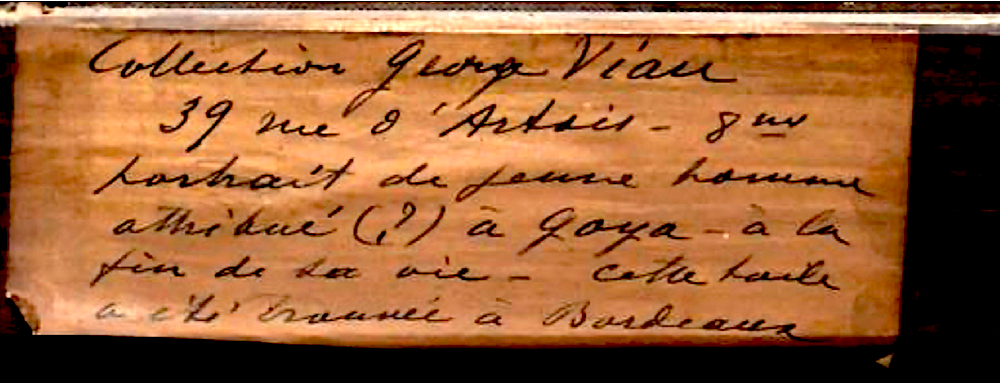 Collection George Viau
39 rue d'Artois - 8me
portrait de jeune homme
attribué (?) à Goya - à la
fin de sa vie - cette toile
a été trouvée à Bordeaux